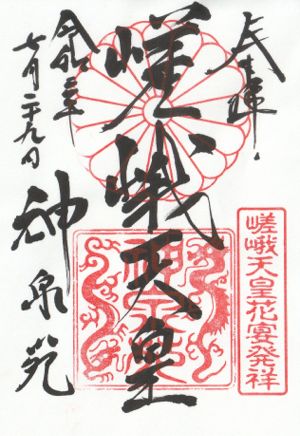 奉拝
嵯峨天皇花宴発祥
嵯峨天皇
令和二年
七月二十九日
神泉苑